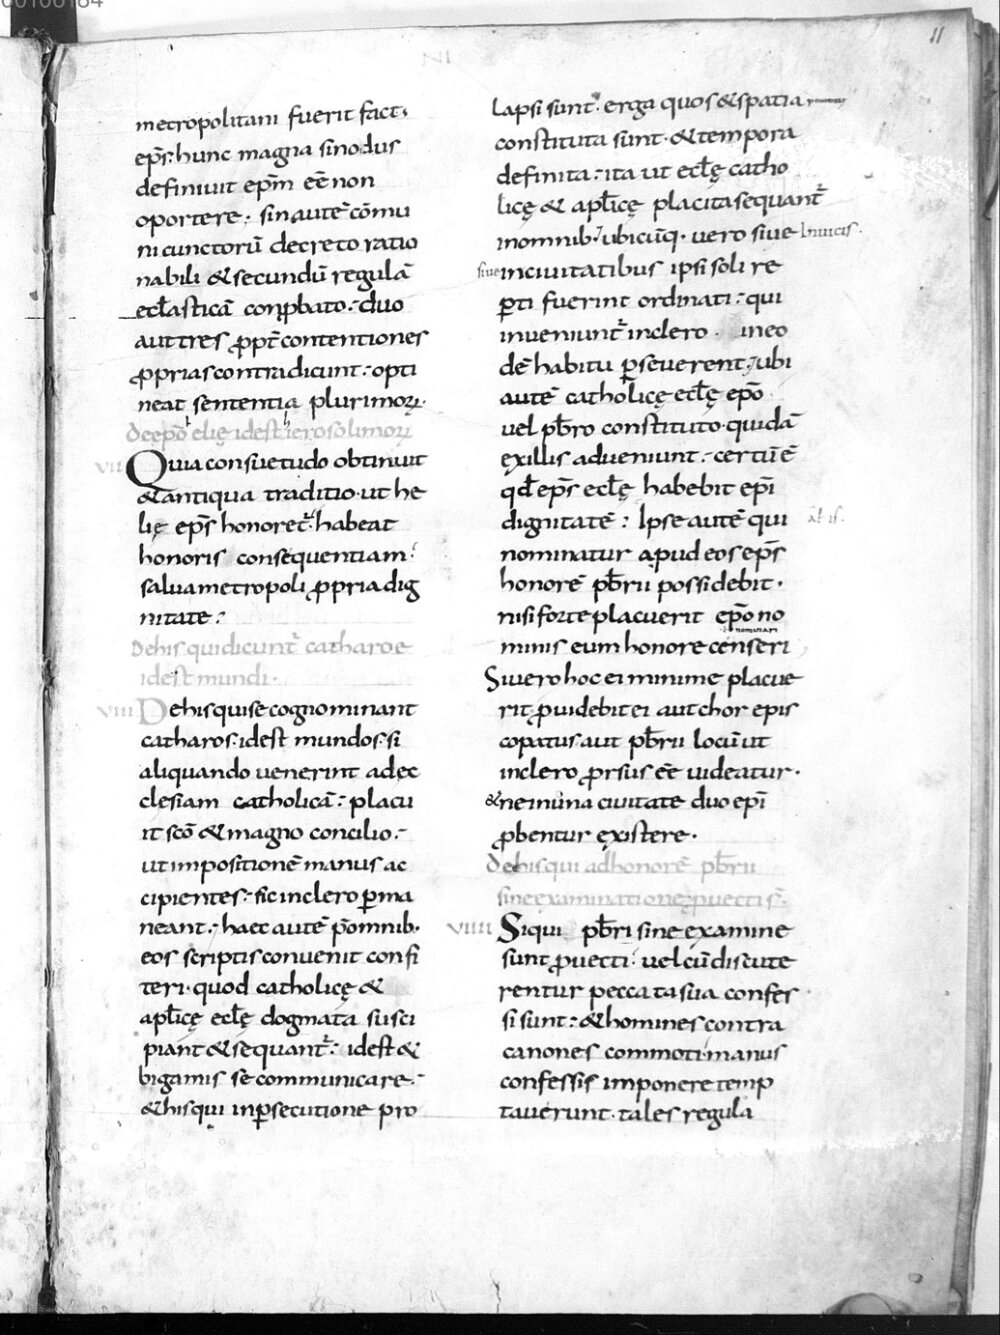 00106184
11
metropolitani fuerit fact᾿
ep̄s. hunc magna sinodus
definiuit ep̄m eē non
oportere· sin autē cōmu
ni cunctorū decreto ratio
nabili & secundū regulā
eccl̄asticā conꝓbato· duo
aut tres ꝓpt̄ contentiones
ꝓprias contradicunt· opti
neat sententia plurimoꝝ·
De epō elię idest ierosolimoꝝ
vii Quia consuetudo obtinuit
& antiqua traditio· ut he
lię ep̄s honoret̄· habeat
honoris consequentiam·
salua metropoli ꝓpria dig
nitate·
De his qui dicunt̄ catharoe
idest mundi·
viii De his qui se cognominant
catharos· idest mundos· si
aliquando uenerint ad ęc
clesiam catholicā· placu
it scō & magno concilio·
ut impositionē manus ac
cipientes· sic in clero ꝑma
neant· haec autē p̄ omnib·
eos scriptis conuenit confi
teri· quod catholicę &
apl̄icę eccl̄ę dogmata susci
piant & sequant̄· idest &
bigamis se communicare·
& his qui in ꝑsecutione pro
lapsi sunt· erga quos & spatia
constituta sunt· & tempora
definita· ita ut eccl̄ę catho
licę & apl̄icę placita sequant̄
in omnib· ubicūq· uero siue in uicis·
siue in ciuitatibus ipsi soli re
ꝑti fuerint ordinati· qui
inueniunt̄ in clero· in eo
dē habitu ꝑseuerent· ubi
autē catholicę eccl̄ę epō
uel pb̄ro constituto· quidā
ex illis adueniunt· certū ē
qd̄ ep̄s eccl̄ę habebit epī
dignitatē· Ipse autē qui āt is·
nominatur apud eos ep̄s
honorē pb̄rii possidebit·
nisi forte placuerit ep̄o no
nominari
minis eum honore censeri
Si uero hoc ei minime placue
rit· ꝓuidebit ei aut chor epis
copatus aut pb̄rii locū ut
in clero ꝓrsus eē uideatur·
& ne in una ciuitate duo epī
ꝓbentur existere·
De his qui ad honorē pb̄rii
sine examinatione ꝓuecti s̄·
viiii Si qui pb̄ri sine examine
sunt ꝓuecti· uel cū discute
rentur peccata sua confes
si sunt· & homines contra
canones commoti· manus
confessis imponere temp
tauerunt· tales regula